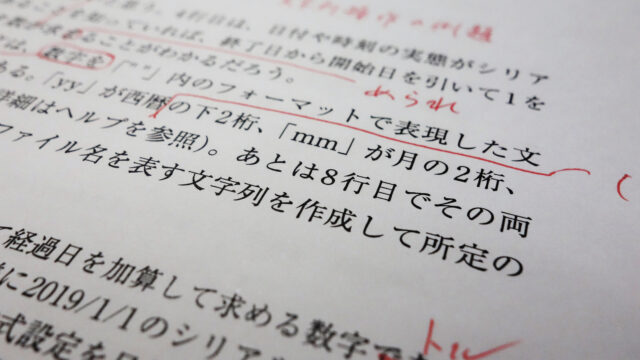 4行目は、日付や時刻の実態がシリア
を知っていれば、終了日から開始日を引いて1を
ることがわかるだろう。
められ
は、数字を「""」内のフォーマットで表現した文
ある。「yy」が西暦の下2桁、「mm」が月の2桁、
詳細はヘルプを参照)。あとは8行目でその両
ファイル名を表す文字列を作成して所定の
て経過日を加算して求める数字で
に2019/1/1のシリア
式設定を日
トル